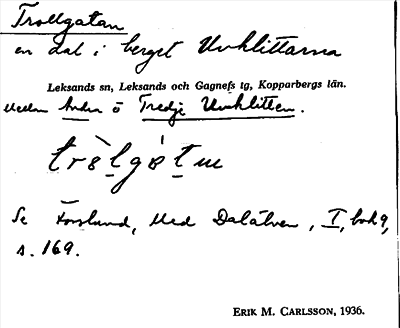 Trollgatan
en dal i berget Uvhlittarna
Leksands sn, Leksands och Gagnefs tg, Kopparbergs län.
Mellan Andra o Tredje Uvhlitten.
trò̀lgátṇ
Se Forslund, Med Dalälven, I, bok 9,
s. 169.
ERIK M. CARLSSON, 1936.